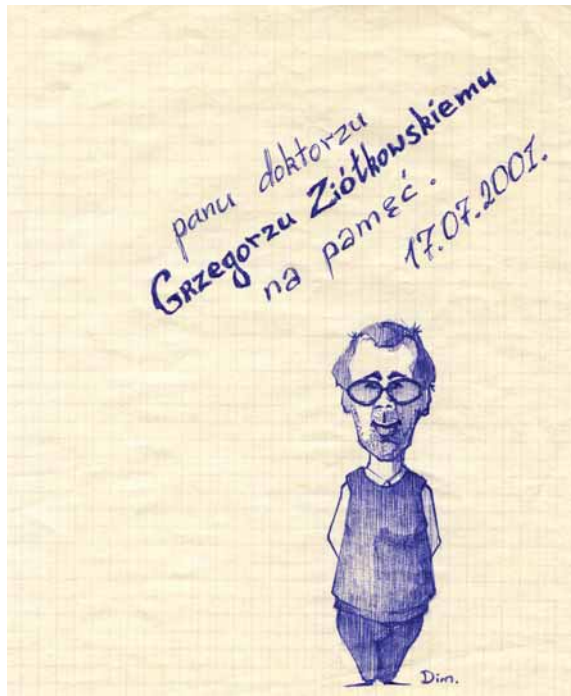 panu doktorzu
Grzegorzu Ziółkowskiemu
na pamęć.
17.07.2001.
Dim.